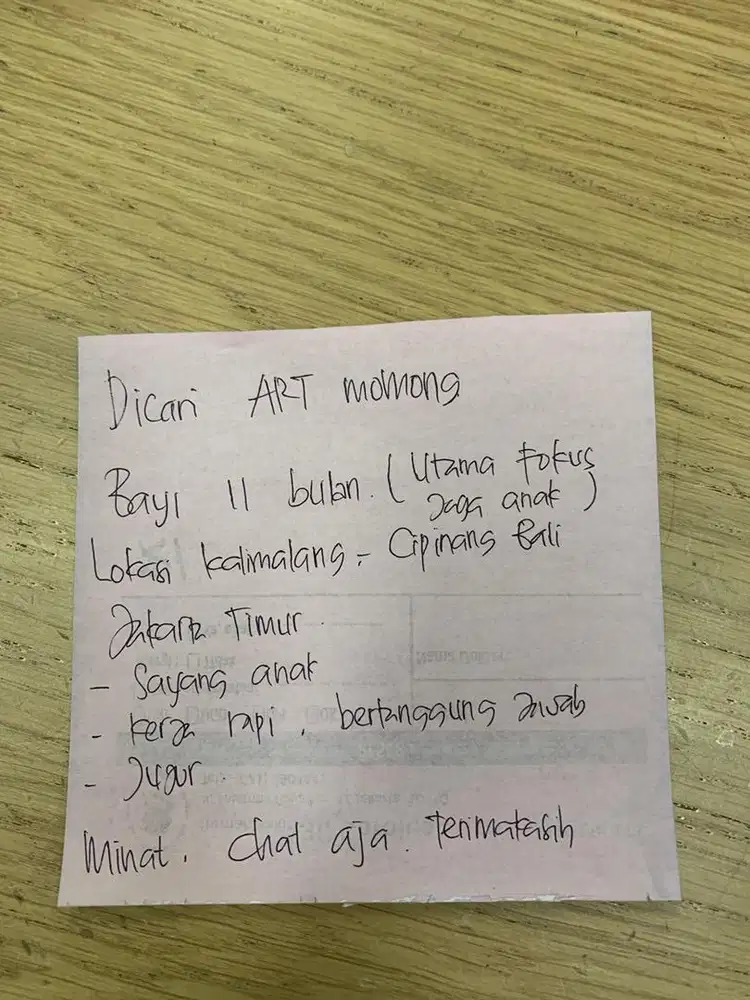 Dicari ART momong
Bayi 11 bulan. (Utama fokus
jaga anak)
Lokasi kalimalang, Cipinang Bali
Jakarta Timur.
- Sayang anak
- kerja rapi, bertanggung jawab
- Jujur
Minat, chat aja. Terimakasih